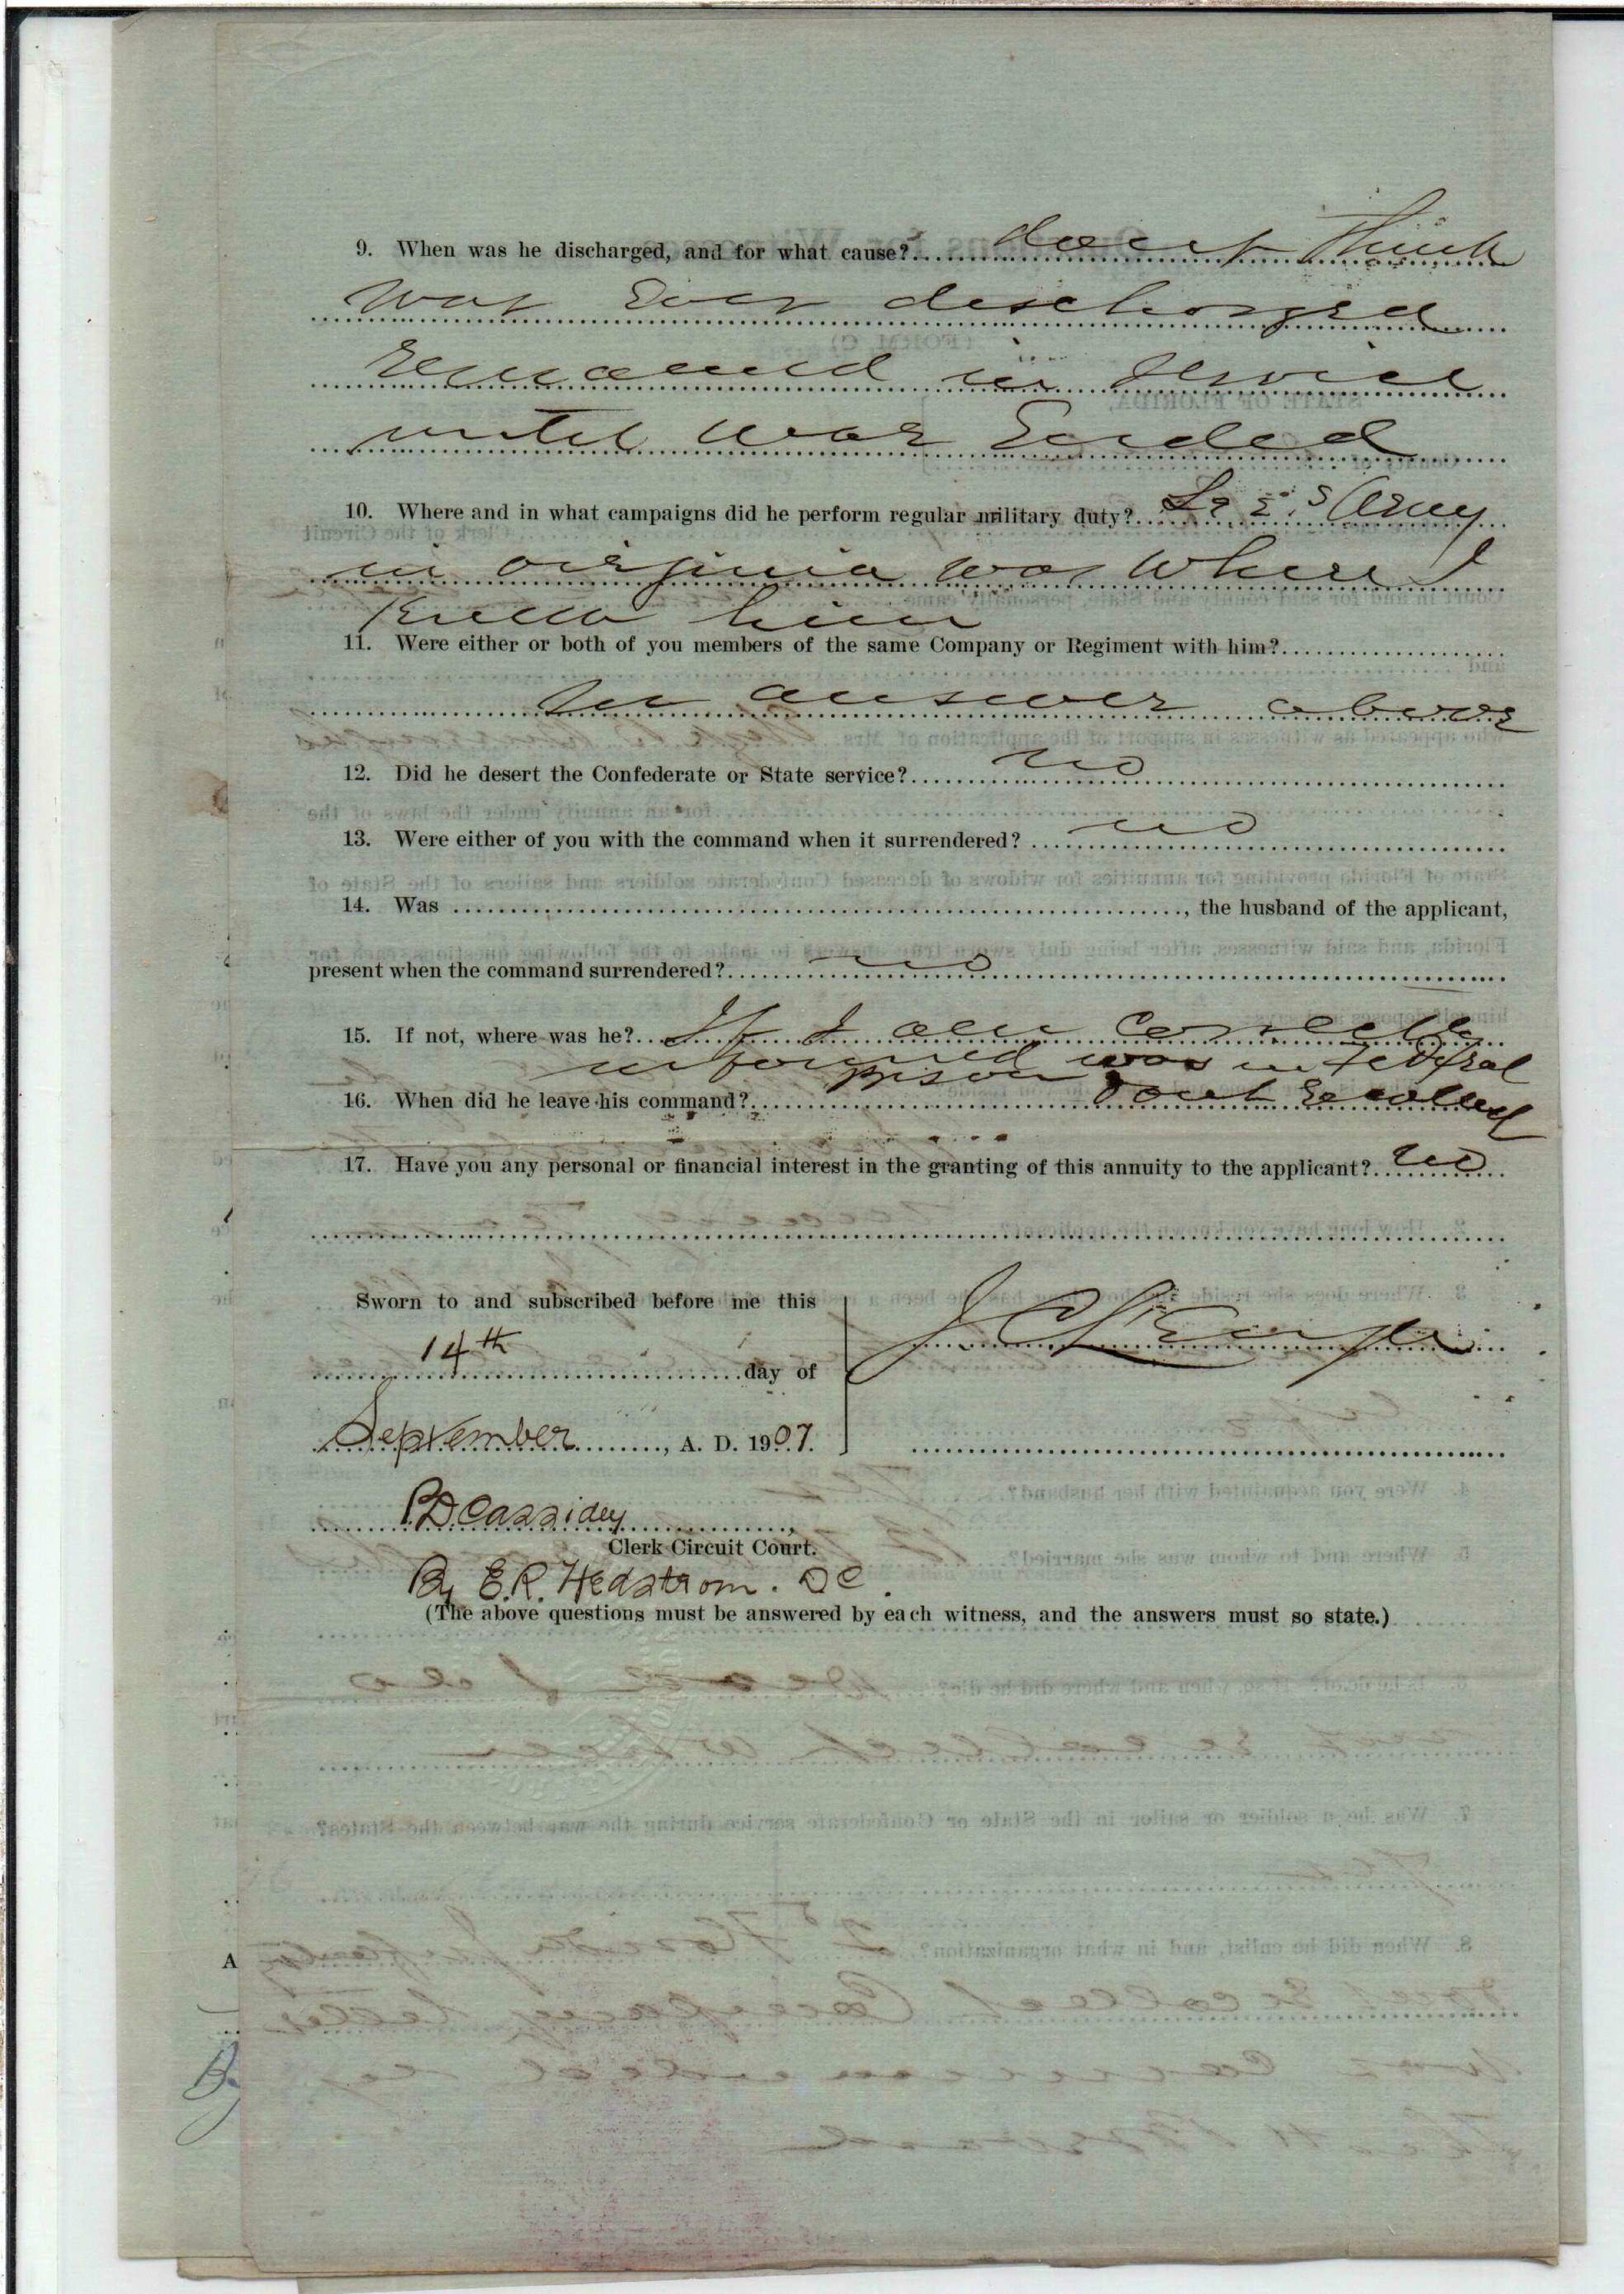 9. When was he discharged, and for what cause? dont think
was Ever discharged
Remained in Service
until war Ended
10. Where and in what campaigns did he perform regular military duty? Army
in virginia was where I
Knew him
11. Were either or both of you members of the same Company or Regiment with him?
See answer above
12. Did he desert the Confederate or State service? no
13. Were either of you with the command when it surrendered? no
14. Was , the husband of the applicant,
present when the command surrendered? no
15. If not, where was he? If I am correctly
informed was in Fedral
prison
16. When did he leave his command? Dont Recollect
17. Have you any personal or financial interest in the granting of this annuity to the applicant? no
Sworn to and subscribed before me this
14th day of
September, A. D. 1907.
P.D. Cassidey
Clerk Circuit Court.
By E.R. Hedstrom. DC.
(The above questions must be answered by each witness, and the answers must so state.)
A